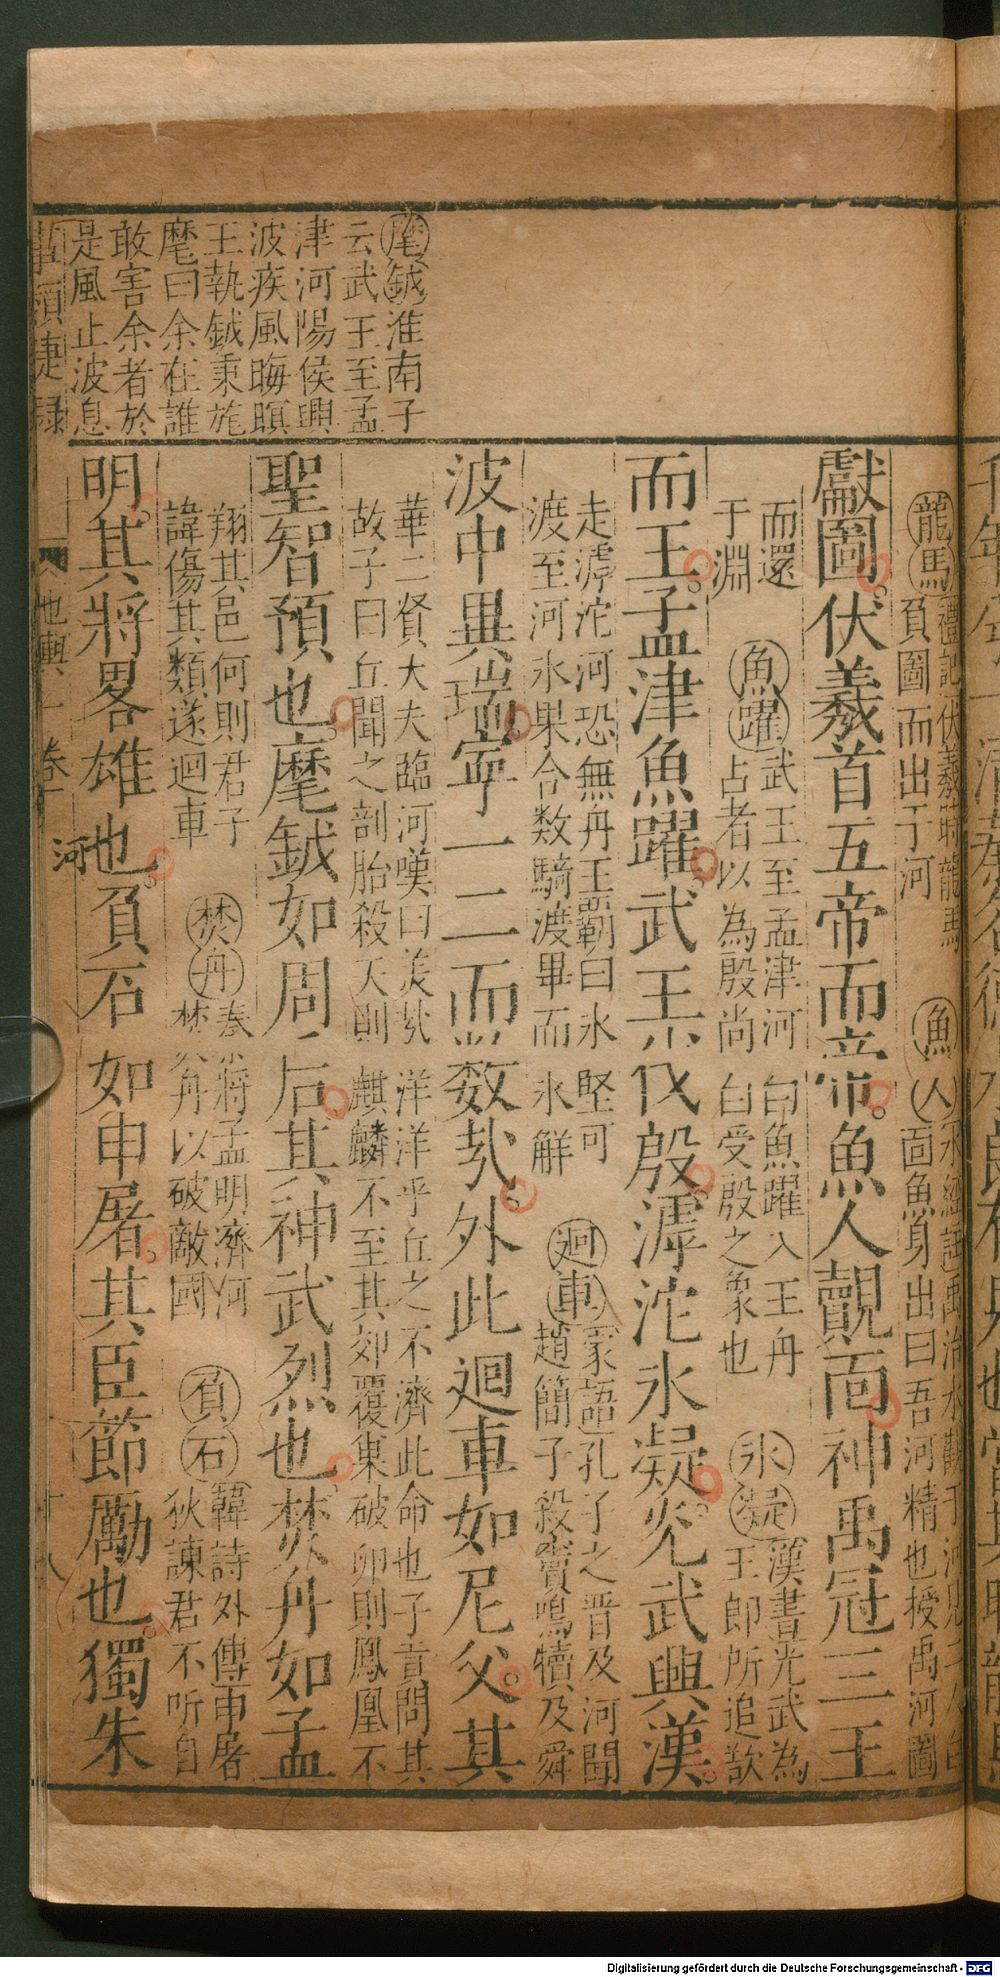 麾鉞淮南子
云武王至孟
津河陽侯興
波疾風晦暝
王執鉞秉旄
麾曰余在誰
敢害余者於
是風止波息
龍馬禮記伏羲時龍馬
負圖而出于河
魚人水經註禹治水觀于河見
面魚身出曰吾河精也授禹河圖
獻圖伏羲首五帝而帝魚人覿面神禹冠三王
而還
于淵
魚躍武王至孟津河
占者以為殷尚
白魚躍入王舟
白受殷之象也
氷凝漢書光武為
王郎所追欲
而王孟津魚躍武王以伐殷滹沱氷凝光武興漢
走滹沱河恐無舟王霸曰氷堅可
渡至河氷果合数騎渡畢而氷解
迴車家語孔子之晋及河聞
趙簡子殺竇鳴犢及舜
波中異瑞寧一二而数㢤外此迴車如尼父其
華二賢大夫臨河嘆曰美㢤洋洋乎丘之不濟此命也子貢問其
故子曰丘聞之剖胎殺夭則麒麟不至其郊覆巢破卵則鳳凰不
聖智預也麾鉞如周后其神武烈也焚舟如孟
翔其邑何則君子
諱傷其類遂迴車
焚舟秦将孟明濟河
焚舟以破敵國
負石韓詩外傳申屠
狄諫君不听自
明其將畧雄也負石如申屠其臣節勵也獨朱
事類捷録
地輿一卷
河
十八
Digitalisierung gefördert durch die Deutsche Forschungsgemeinschaft - DFG